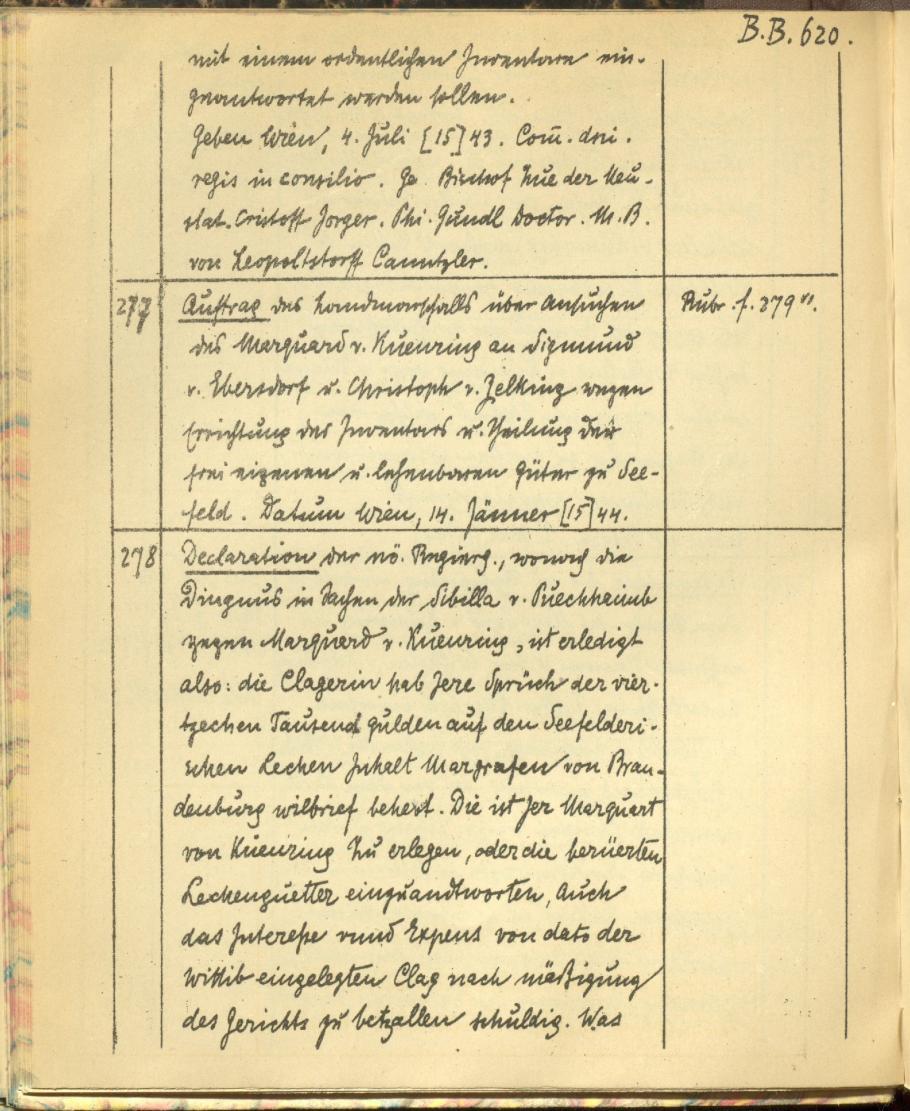 B.B. 620.
mit einem ordentlichen Inventare ein-
geantwortet werden sollen.
Geben Wien, 4. Juli [15]43. Com̄. dni.
regis in consilio. Ge. Bischof Zue der Neu-
stat. Cristoff Jorger. Phi. Gundl Doctor. M. B.
von Leopoltstorff Canntzler.
277 Auftrag des Landmarschalls über Ansuchen Rubr. f. 279
des Marquard v. Kuenring an Sigmund
v. Ebersdorf u. Christoph v. Zelking wegen
Errichtung des Inventars u. Theilung der
frei eigenen u. lehenbaren Güter zu See-
feld. Datum Wien, 14. Jänner [15]44.
278 Declaration der nö. Regierg., wonach die
Dingnus in Sachen der Sibilla v. Puechhaimb
gegen Marquard v. Kuenring, ist erledigt
also: die Clagerin hab Jere Sprüch der vier-
tzechen Tausend gulden auf den Seefelderi-
schen Lechen Inhalt Margrafen von Bran-
denburg wilbrief behebt. Die ist Jer Marquart
von Kuenring Zu erlegen, oder die berüerten
Lechenguetter einzuandtworten, Auch
das Interesse vnnd Expens von dato der
Wittib eingelegten Clag nach mäßigung
des Gerichts zu betzallen schuldig. Was